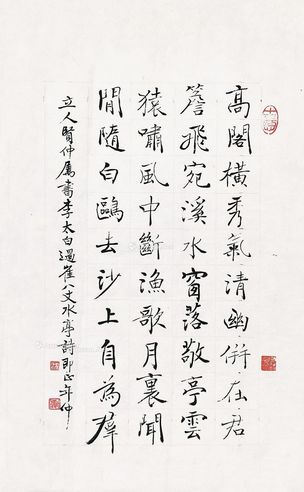 高閣橫秀氣清幽併在君
簷飛宛溪水窗落敬亭雲
猿嘯風中斷漁歌月裏聞
閒隨白鷗去沙上自為群
立人賢仲屬書李太白過崔八丈水亭詩即正年仲